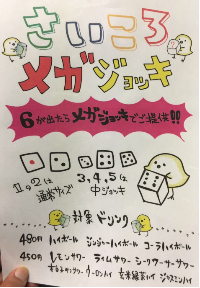 さいころ
メガジョッキ
6が出たらメガジョッキでご提供!!
1,2位
3,4,5位
通常サイズ
中ジョッキ
対象ドリンク
480円 ハイボール ジンジャーハイボール コーラハイボール
450円 レモンサワー ライムサワー シークワーサーサワー
ウーロンハイ 玄米緑茶ハイ ジャスミンハイ